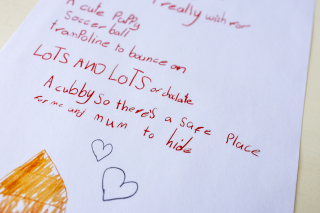 I really wish for
A cute Puppy
Soccer ball
trampoline to bounce on
LOTS AND LOTS or choclate
A cubby So there's a safe Place
for me and mum to hide